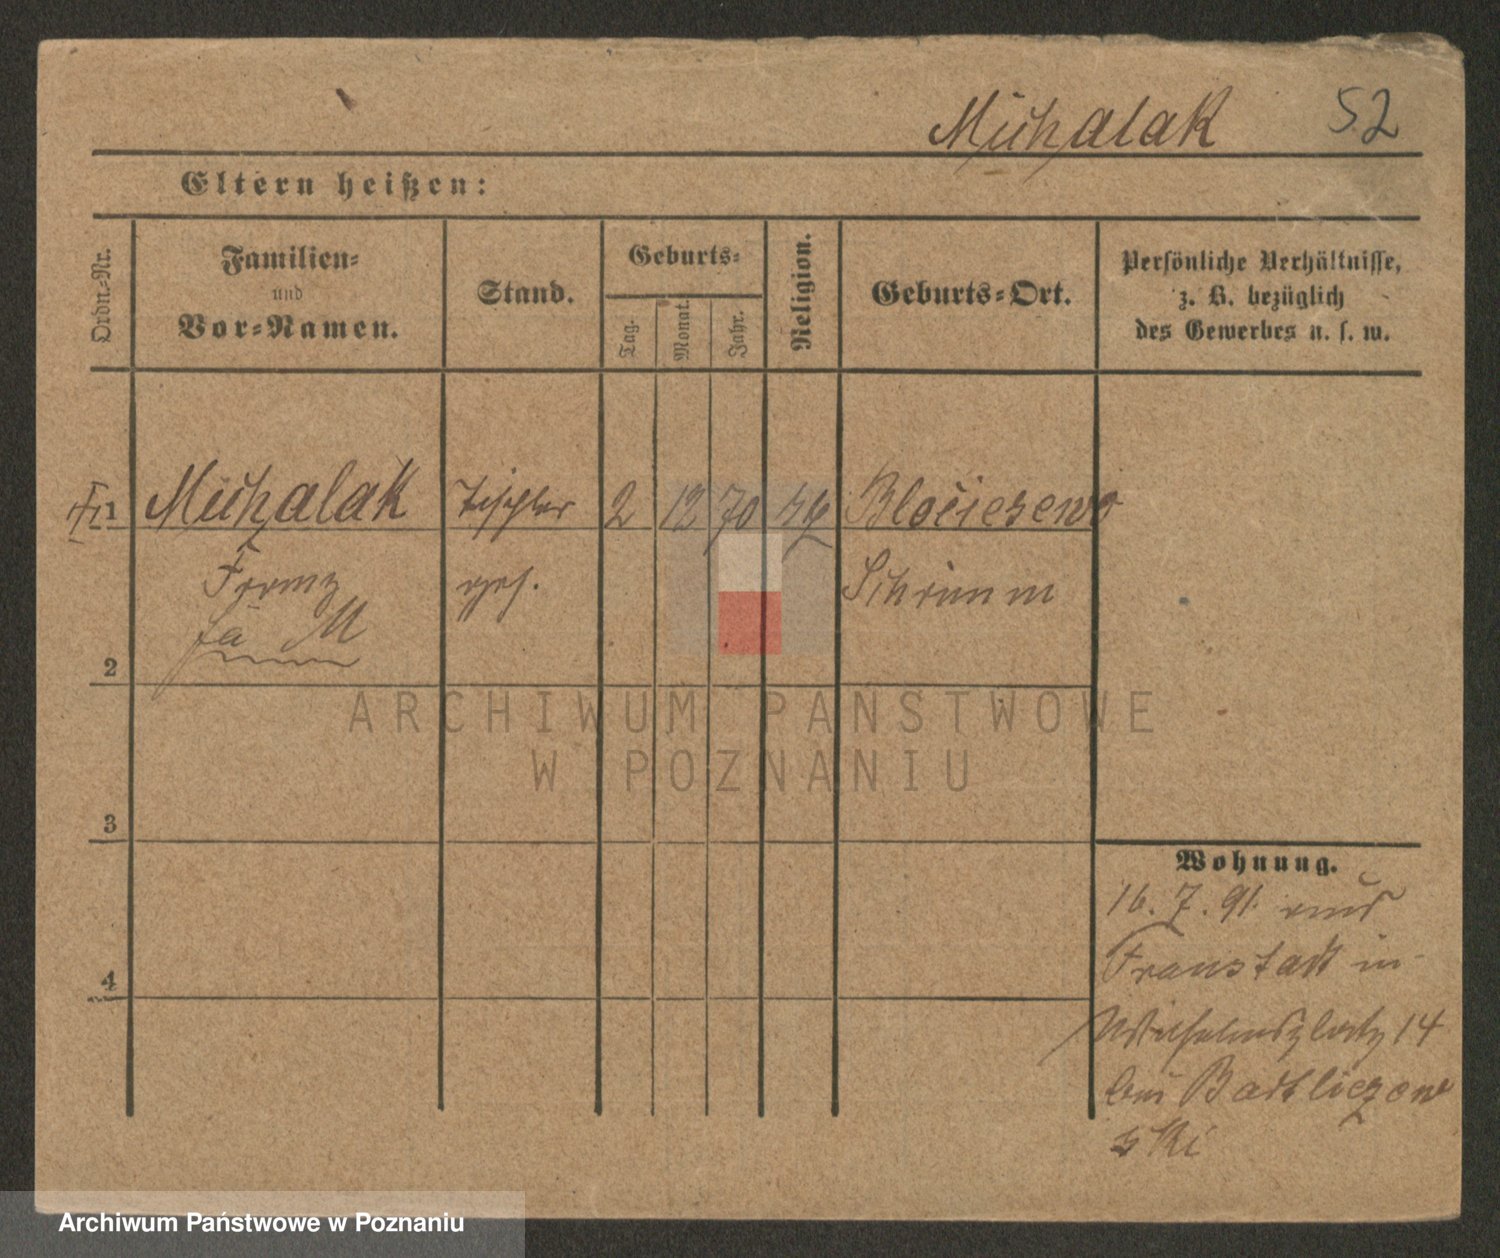 Michalak 52
Eltern heißen:
Ordn.-Nr.
Familien-
und
Vor-Namen.
Stand.
Geburts-
Tag.
Monat.
Jahr.
Religion.
Geburts-Ort.
Persönliche Verhältnisse,
z. B. bezüglich
des Gewerbes u. s. w.
1 Michalak Tischler 2 12 70 kg Bločiszewo
Franz ges. Schrimm
M
2
3
4
Wohnung.
16. 7. 91. aus
Fraustadt in
Wilhelmsplatz 14
bei
ski
ARCHIWUM PAŃSTWOWE
W POZNANIU
Archiwum Państwowe w Poznaniu